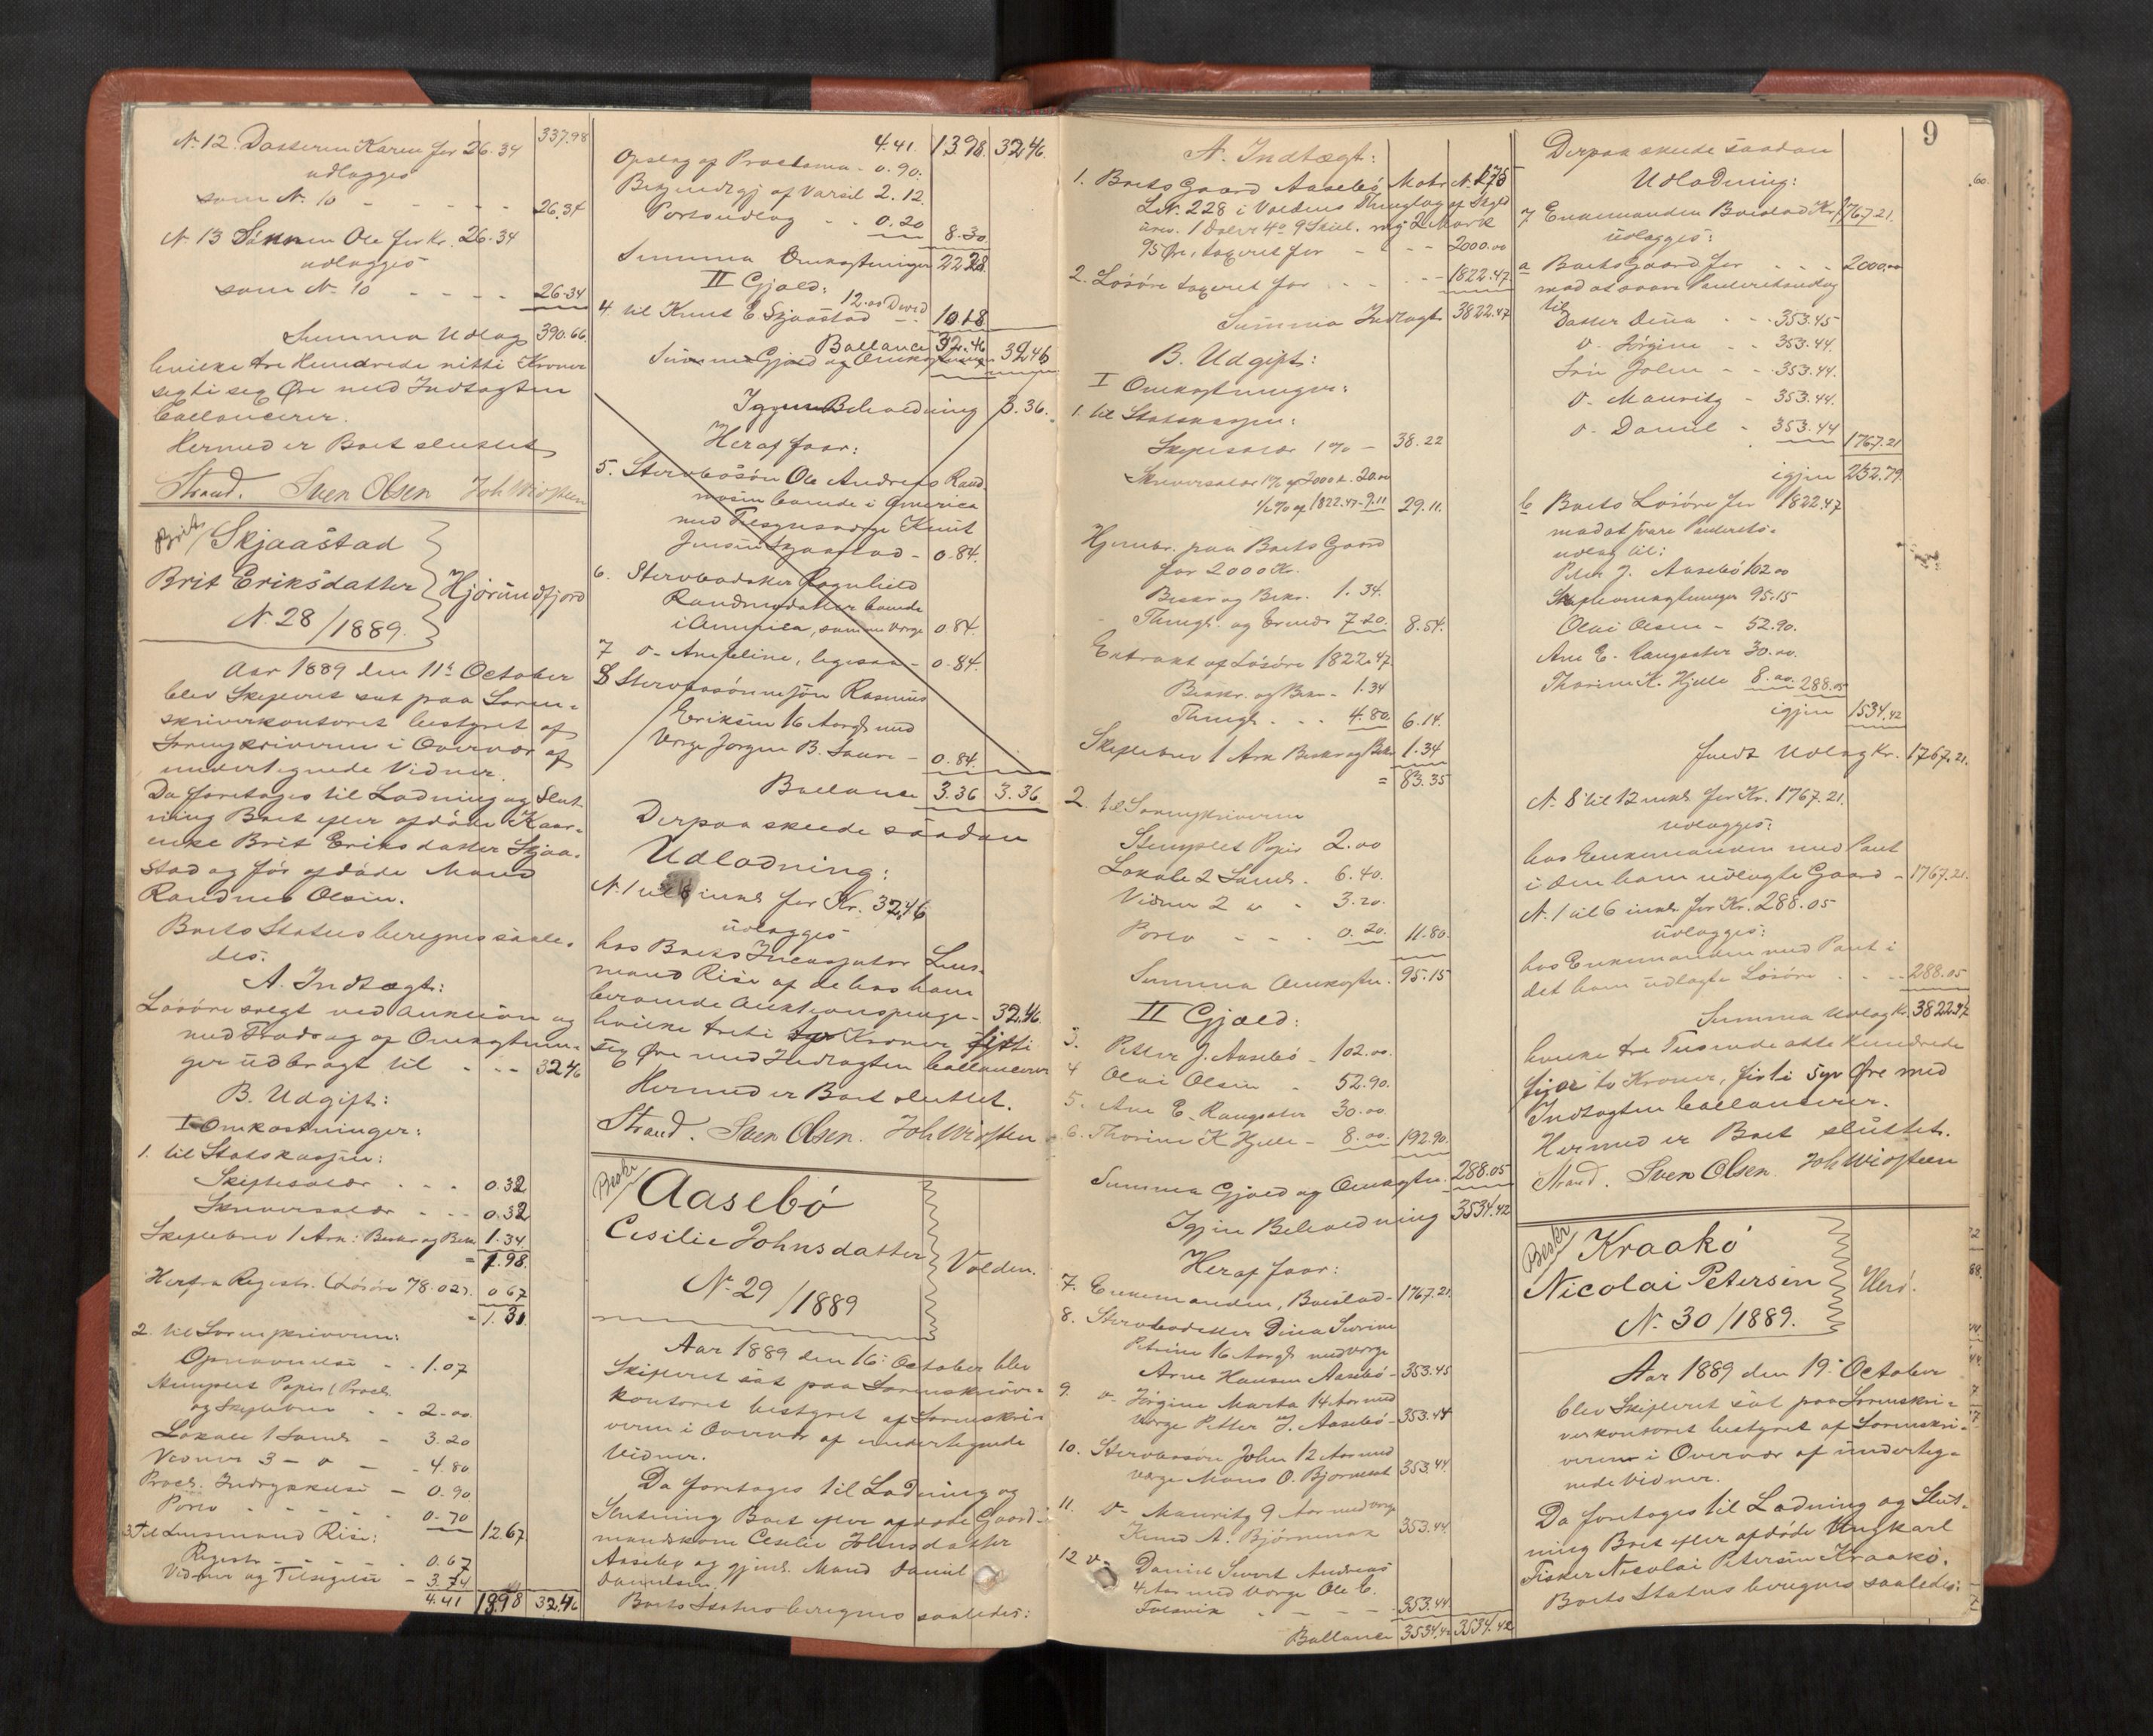 337.98
N. 12. Datteren Karen for 26.34
udlægges
som N. 10 - - - - - 26.34
N. 13 Sønnen Ole for Kr. 26.34
udlægges
som N. 10 - - - - 26.34
Summa Udlæg 390.66
hvilke tre Hundrede nitti Kroner
segti seg Øre med Indtægten
ballancerer.
Hermed er Boet sluttet
Strand. Sven Olsen Joh Widsteen
Skjaastad
Brit Eriksdatter
Hjørundfjord
N. 28/1889.
Aar 1889 den 11te October
blev Skifteret sat paa Soren-
skriverkontoret bestyret af
Sorenskriveren i Overvær af
undertegnede Vidner.
Da foretoges til Lodning og Slut-
ning Boet efter afdøde Kaar-
enke Brit Eriksdatter Skjaa-
stad og før afdøde Mand
Randnes Olsen.
Boets Status beregnes saale-
des:
A. Indtægt:
Løsøre solgt ved Auktion og
med Fradrag af Omkostnin-
ger udbragt til - - - 32.46
B. Udgift:
I Omkostninger:
1. til Statskassen:
Skiftesalær - - - 0.32
Skriversalær - - - 0.32
Skiftebrev 1 Ark: Beskr og Bek 1.34
= 1.98.
Herfra Registr. (Løsøre 78.02). 0 67
= 1.31.
2. til Sorenskriveren:
Opnævnelse - - 1.07
Stemplet Papir (Procl.
og Skiftebrev - - 2.00
Lokale 1 Samls - 3.20
Vidner 3 - o - - 4.80
Procl. Indrykkelse - 0.90
Porto - - - - 0.70
12.67
3 Til Lensmand Rise:
Registr - - - - - 0.67
Vidner og Tilsigelse - 3.74
4.41 13.98 32.46
4.41. 13.98. 32.46.
Opslag af Proclama - 0.90.
Bekjendtgj af Varsel 2.12.
Portoudlæg - 0.20
8.30
Summa Omkostninger 22.28
II Gjæld:
12.00 Divid
4 til Knut E Skjaastad - 10.18
Ballance 32.46
Summa Gjæld og Omkostninger 32.46
Igjen Beholdning 3.36.
Heraf faar:
5. Stervbosøn Ole Andreas Rand-
nesen boende i America
med Tilsynsværge Knut
Jensen Skjaastad - 0.84.
6. Stervbodatter Ragnhild
Randnesdatter boende
i America, samme Værge 0.84.
7 o - Aneteline, ligesaa - 0.84.
8 Stervbosønnesøn Rasmus
Eriksen 16 Aargl med
Værge Jørgen B. Saure - 0.84.
Ballance 3.36 3.36
Derpaa skeede saadan
Udlodning:
N. 1 til 4 inkl for Kr. 32.46
udlægges
hos Boets Incassator Lens-
mand Rise af de hos ham
beroende Auktionspenge - 32.46.
hvilke treti to Kroner firti
seg Øre med Indtægten ballancerer
Hermed er Boet sluttet.
Strand. Sven Olsen. Joh Widsteen
Beskr
Aasebø
Cesilie Johnsdatter
Volden.
N. 29/1889
Aar 1889 den 16. October blev
Skifteret sat paa Sorenskriver-
kontoret bestyret af Sorenskri-
veren i Overvær af undertegnede
Vidner.
Da foretoges til Lodning og
Slutning Boet efter afdøde Gaard-
mandskone Cesilie Johnsdatter
Aasebø og gjenl. Mand Daniel
Danielsen.
Boets Status beregnes saaledes:
9
A. Indtægt:
1. Boets Gaard Aasebø Matr N. 175
L.N. 228 i Voldens Thinglag af Skyld
1 Daler 4 o 9 Skil. ny 2 Mark
95 Øre, taxeret for - - - 2000.00
2. Løsøre taxeret for - - - - 1822.47
Summa Indtægt 3822.47
B. Udgift:
I Omkostninger:
1. til Statskassen:
Skiftesalær 1% - 38.22
Skriversalær 1% af 2000 k. 20.00
1/2 % af 1822.47 - 9.11 29.11.
Hjemler. paa Boets Gaard
for 2000 Kr.
Beskr og Bekr. 1.34.
Thingl. og 7.20. 8.54.
Extrakt af Løsøre 1822.47
Beskr. og Bekr - 1.34
Thingl. - - - 4.80. 6.14.
Skiftebrev 1 Ark Beskr og Bek 1.34
= 83.35
2. til Sorenskriveren
Stemplet Papir 2.00
Lokale 2 Samls. 6.40.
Vidner 2 o - 3.20.
Porto - - - 0.20. 11.80.
Summa Omkostn. 95.15
II Gjæld:
3. Petter J. Aasebø - 102.00.
4 Olai Olsen - 52.90.
5. Ane E. Rangsæter 30.00.
6. Thorine K Hjelle - 8.00. 192.90.
Summa Gjæld og Omkostn. 288.05
Igjen Beholdning 3534.42
Heraf faar:
7. Enkemanden, Boeslod - 1767.21.
8. Stervbodatter Dina Severine
Petrine 16 Aargl med Værge
Arne Hansen Aasebø - 353.45
9. o - Jørgine Marta 14 Aar med
Værge Petter J. Aasebø - 353.44
10. Stervbosøn John 12 Aar med
Værge Mons O. Bjørneset 353.44.
11. o - Mauritz 9 Aar med Værge
Knud A. 353.44.
12 o - Daniel Sivert Andreas
4 Aar med Værge Ole C.
Folevik - - - - 353.44
Ballance 3534.42 3534.42
Derpaa skeede saadan
Udlodning:
7 Enkemanden Boeslod Kr. 1767.21.
udlægges:
a Boets Gaard for - - - 2000.00
mod at svare Panteretsudlæg
til
Datter Dina - - - 353.45
o. Jørgine - - 353.44.
Søn John - - 353.44.
o. Mauritz - 353.44.
o. Daniel - 353.44 1767.21
igjen 232.79.
b Boets Løsøre for 1822.47
mod at svare Panterets-
udlæg til:
Peter J. Aasebø 102.00
Skifteomkostninger 95.15
Olai Olsen - 52.90.
Ane E. Rangsæter 30.00.
Thorine K. Hjelle 8.00. 288.05
igjen 1534.42
fuldt Udlæg Kr. 1767.21.
N. 8 til 12 inkl. for Kr. 1767.21.
udlægges:
hos Enkemanden med Pant
i den ham udlagte Gaard - 1767.21.
N. 1 til 6 inkl. for Kr. 288.05
udlægges:
hos Enkemanden med Pant i
det ham udlagte Løsøre - - - 288.05
Summa Udlæg Kr. 3822.47
hvilke tre Tusinde otte Hundrede
to Kroner, firti syv Øre med
Indtægten ballancerer.
Hermed er Boet sluttet.
Strand. Sven Olsen. Joh Widsteen
Beskr
Kraakø
Nicolai Petersen
Herø.
N. 30/1889.
Aar 1889 den 19. October
blev Skifteret sat paa Sorenskri-
verkontoret bestyret af Sorenskri-
veren i Overvær af underteg-
nede Vidner.
Da foretoges til Lodning og Slut-
ning Boet efter afdøde Ungkarl
Fisker Nicolai Petersen Kraakø.
Boets Status beregnes saaledes: